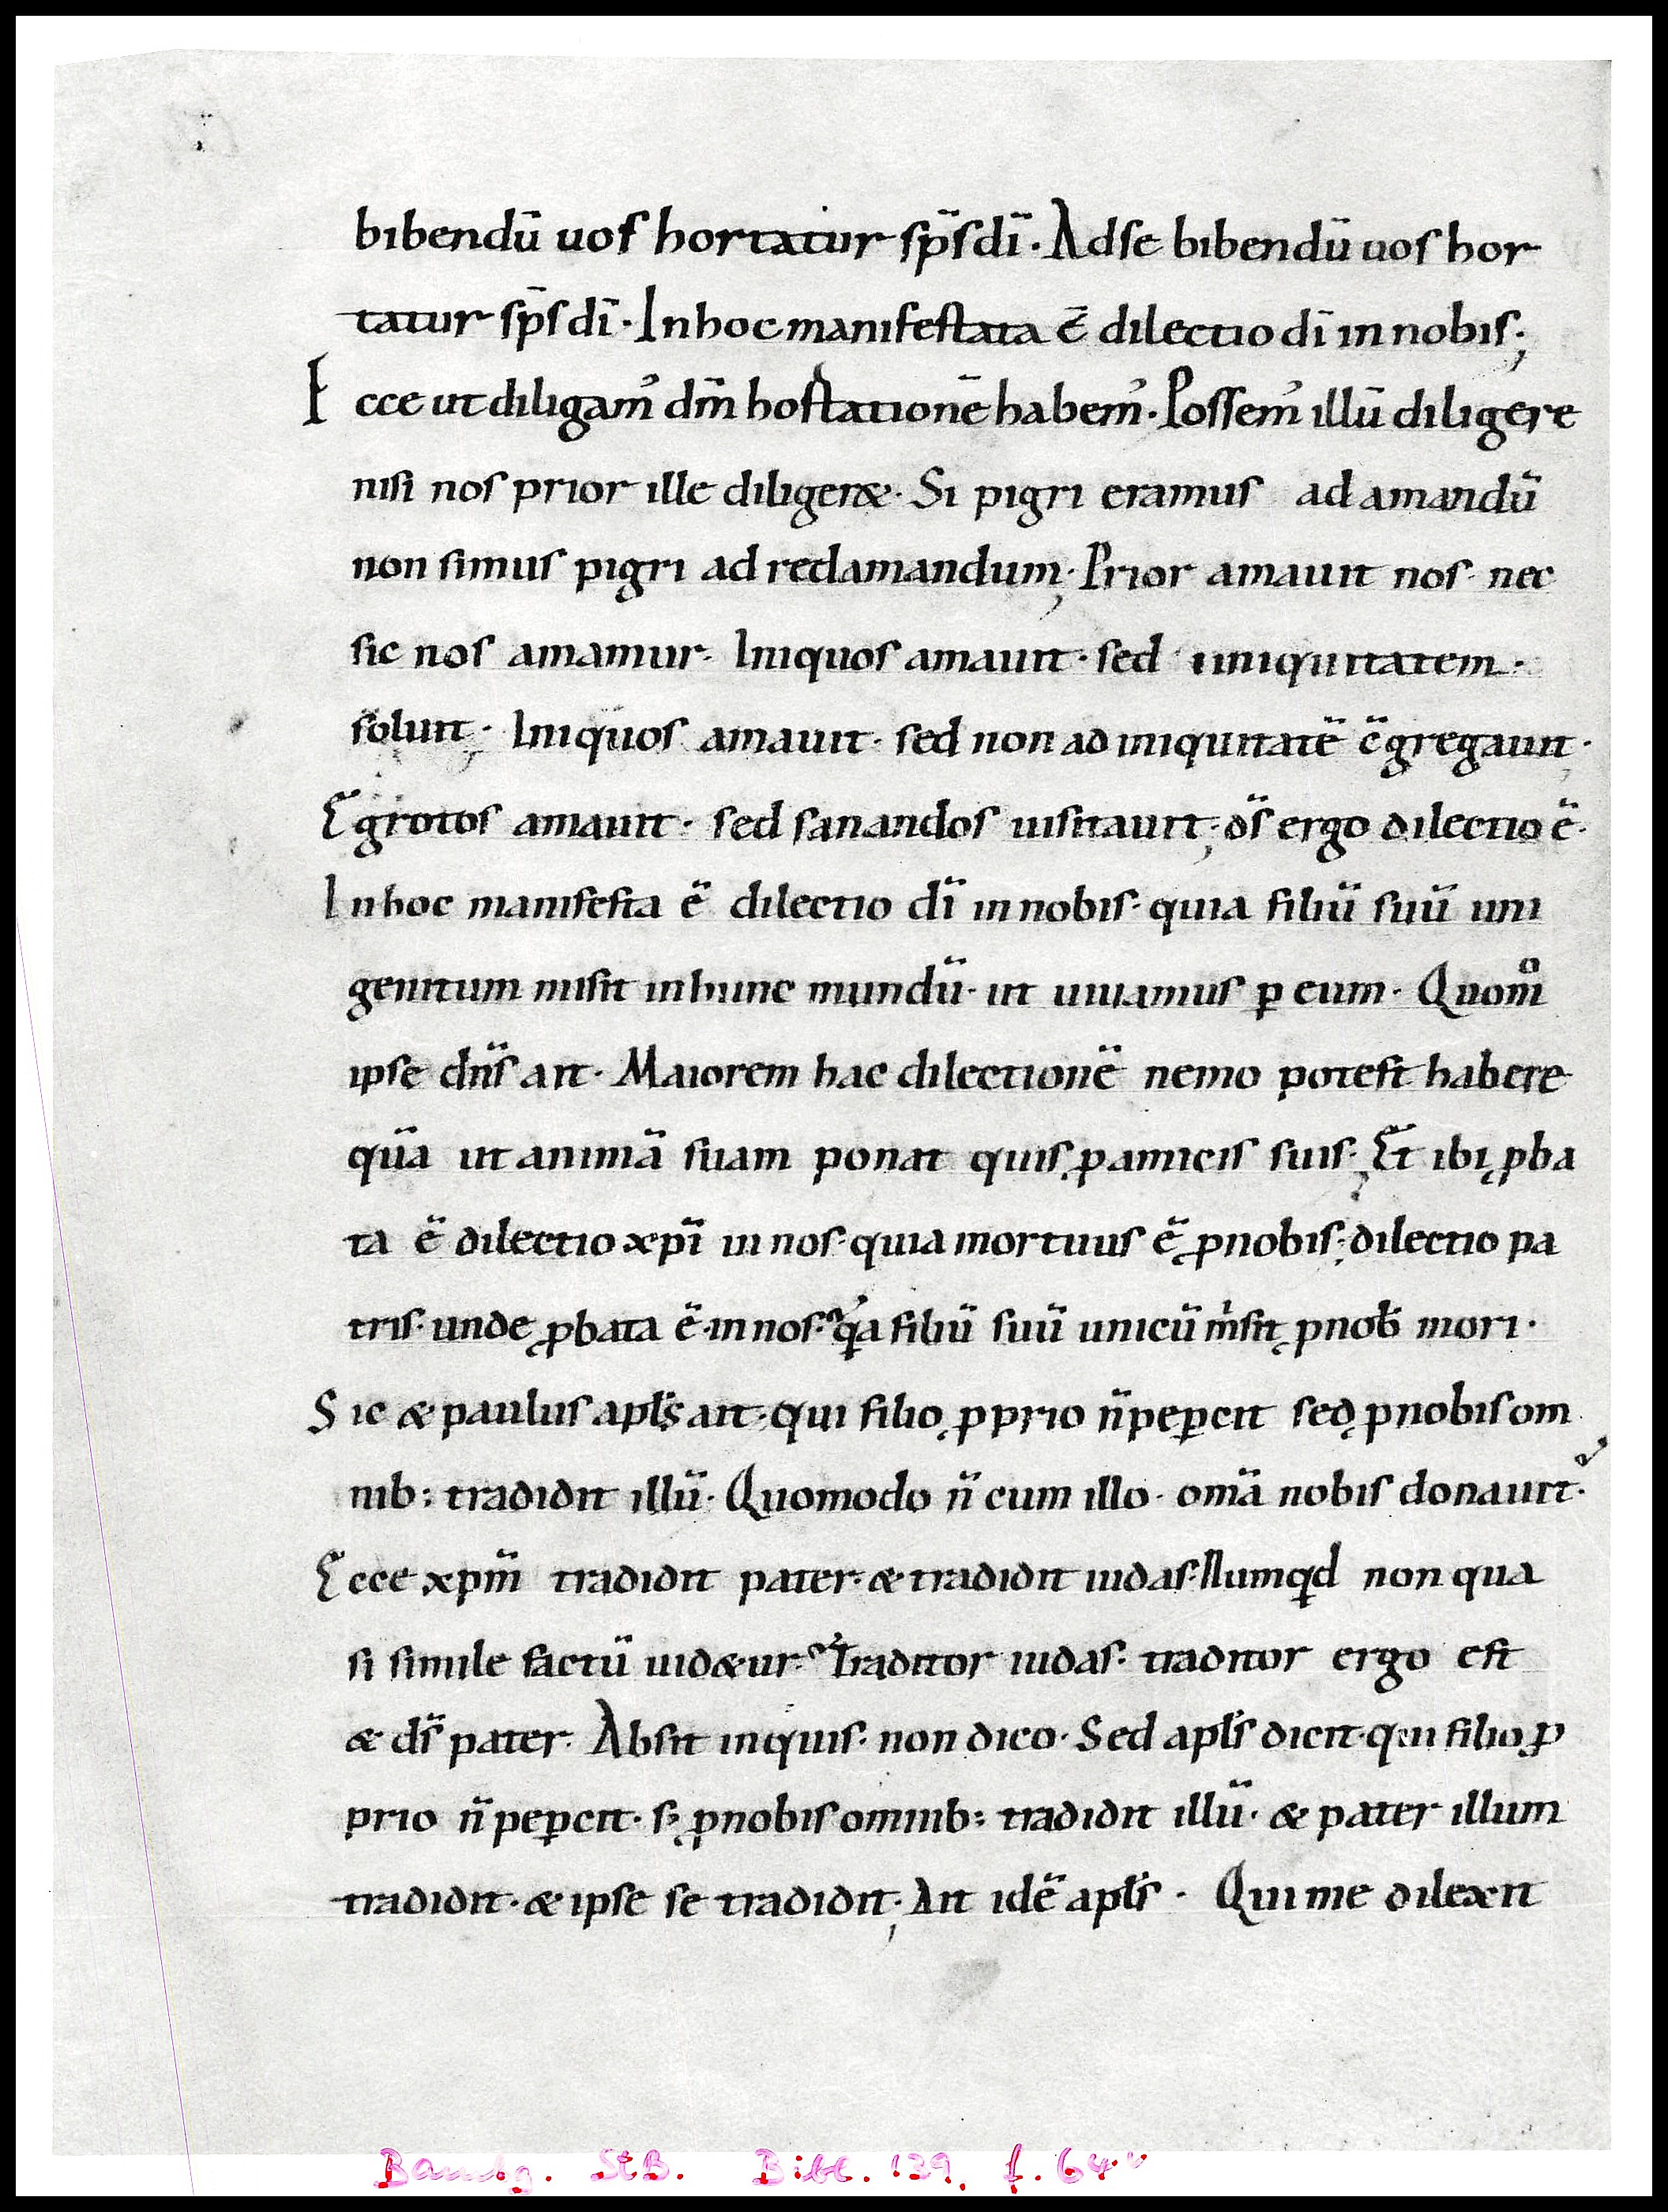 bibendū uos hortatur sp̄s dī. Ad se bibendū uos hor
tatur sp̄s dī. In hoc manifestata ē dilectio dī in nobis;
Ecce ut diligam᾽ dm̄ hostationē habem᾽. Possem᾽ illū diligere
nisi nos prior ille diliger&. Si pigri eramus ad amandū
non simus pigri ad redamandum; Prior amauit nos. nec
sic nos amamur. Iniquos amauit. sed iniquitatem.
soluit; Iniquos amauit. sed non ad iniquitatē c̄gregauit.
Egrotos amauit. sed sanandos uisitauit; ds̄ ergo dilectio ē.
In hoc manifesta ē dilectio dī in nobis. quia filiū suū uni
genitum misit in hunc mundū. ut uiuamus ꝑ eum. Quom̊
ipse dn̄s ait. Maiorem hac dilectionē nemo potest habere
quā ut animā suam ponat quis ꝓ amicis suis; Et ibi ꝓba
ta ē dilectio xp̄i in nos. quia mortuus ē ꝓ nobis; dilectio pa
tris. unde ꝓbata ē in nos? q̇a filiū suū unicū misit ꝓ nob̄ mori.
Sic & paulus apl̄s ait. qui filio ꝓprio n̄ peꝑcit sed ꝓ nobis om
nib: tradidit illū. Quomodo n̄ cum illo. om̄a nobis donauit?
Ecce xpm̄ tradidit pater. & tradidit iudas. Numqd non qua
si simile factū uid&ur? Traditor iudas. traditor ergo est
& ds̄ pater. Absit inquis. non dico. Sed apl̄s dicit. qui filio ꝓ
prio n̄ peꝑcit. sꝫ ꝓ nobis omnib: tradidit illū. & pater illum
tradidit. & ipse se tradidit; Ait idē apl̄s. Qui me dilexit
Bambg. StB. Bibl. 139, f. 64ᵛ